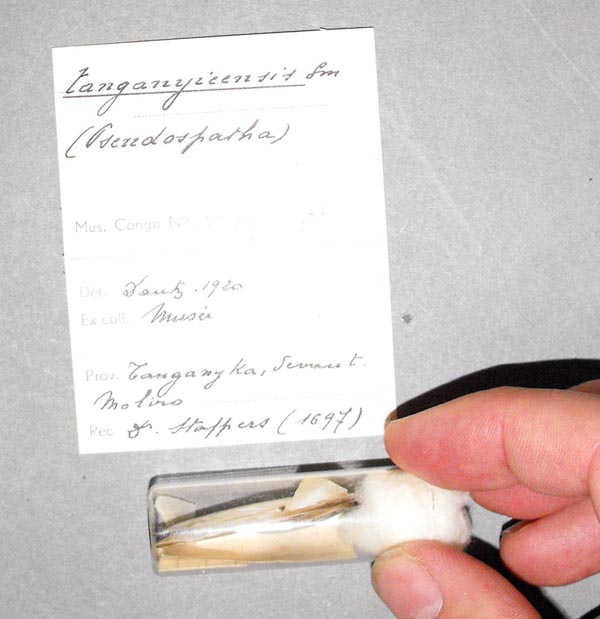 tanganyicensis Sm
(Pseudospatha)
Mus. Congo No
Dét. Dautz. 1920
Ex coll. Musée
Prov. Tanganyka, devant.
Moliro
Rec. Dr. Stappers (1697)